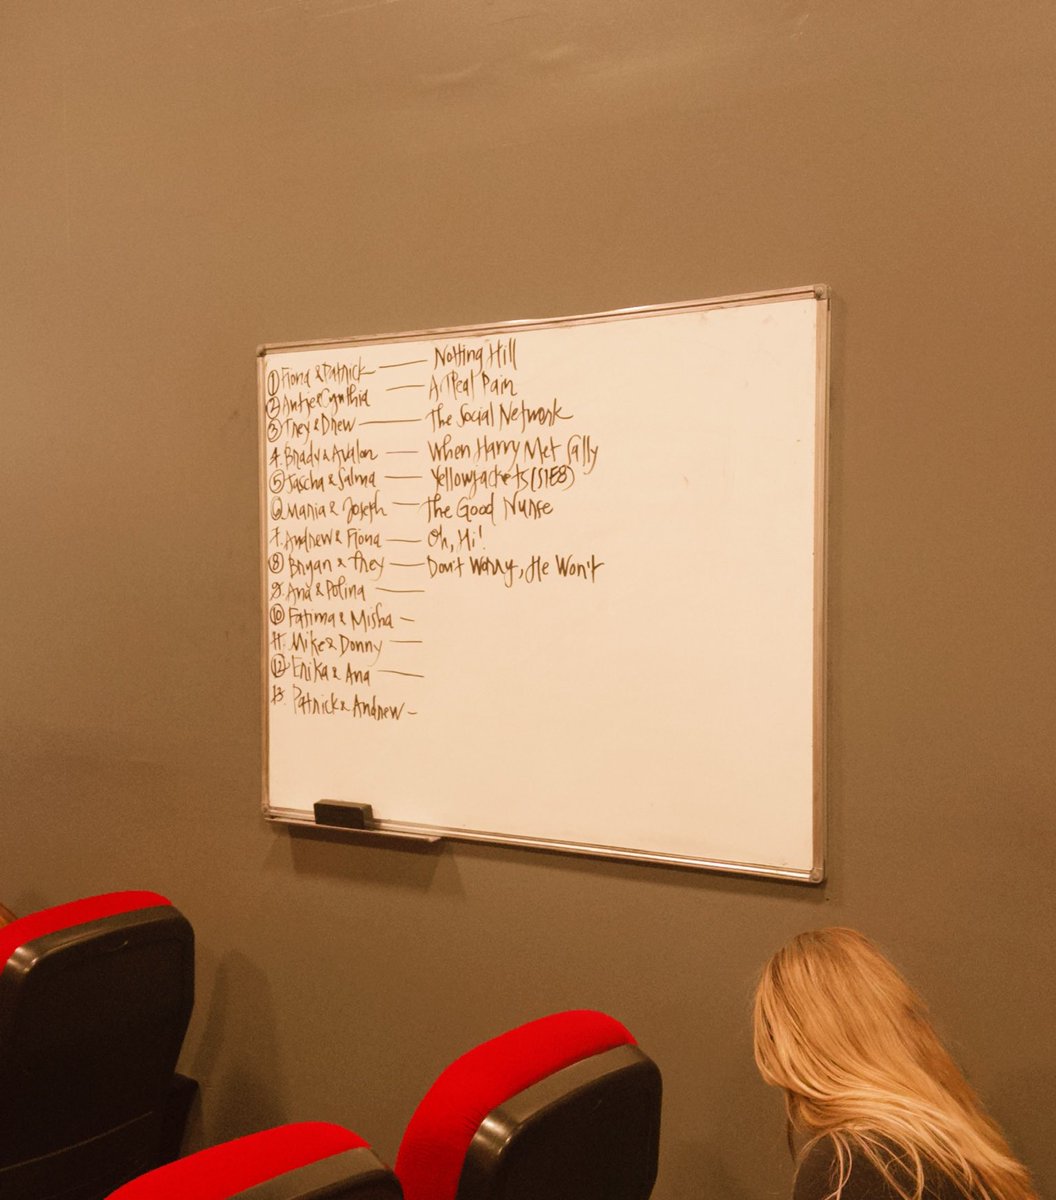 ① Fiona & Patrick — Notting Hill
② Antje & Cynthia — A Real Pain
③ Trey & Drew — The Social Network
4. Brady & Avalon — When Harry Met Sally
⑤ Sascha & Salma — Yellowjackets (S1E8)
⑥ Maria & Joseph — The Good Nurse
7. Andrew & Fiona — Oh, Hi!
⑧ Bryan & Trey — Don't Worry, He Won't
9. Ana & Polina —
⑩ Fatima & Misha —
11. Mike & Donny —
⑫ Erika & Ana —
13. Patrick & Andrew –